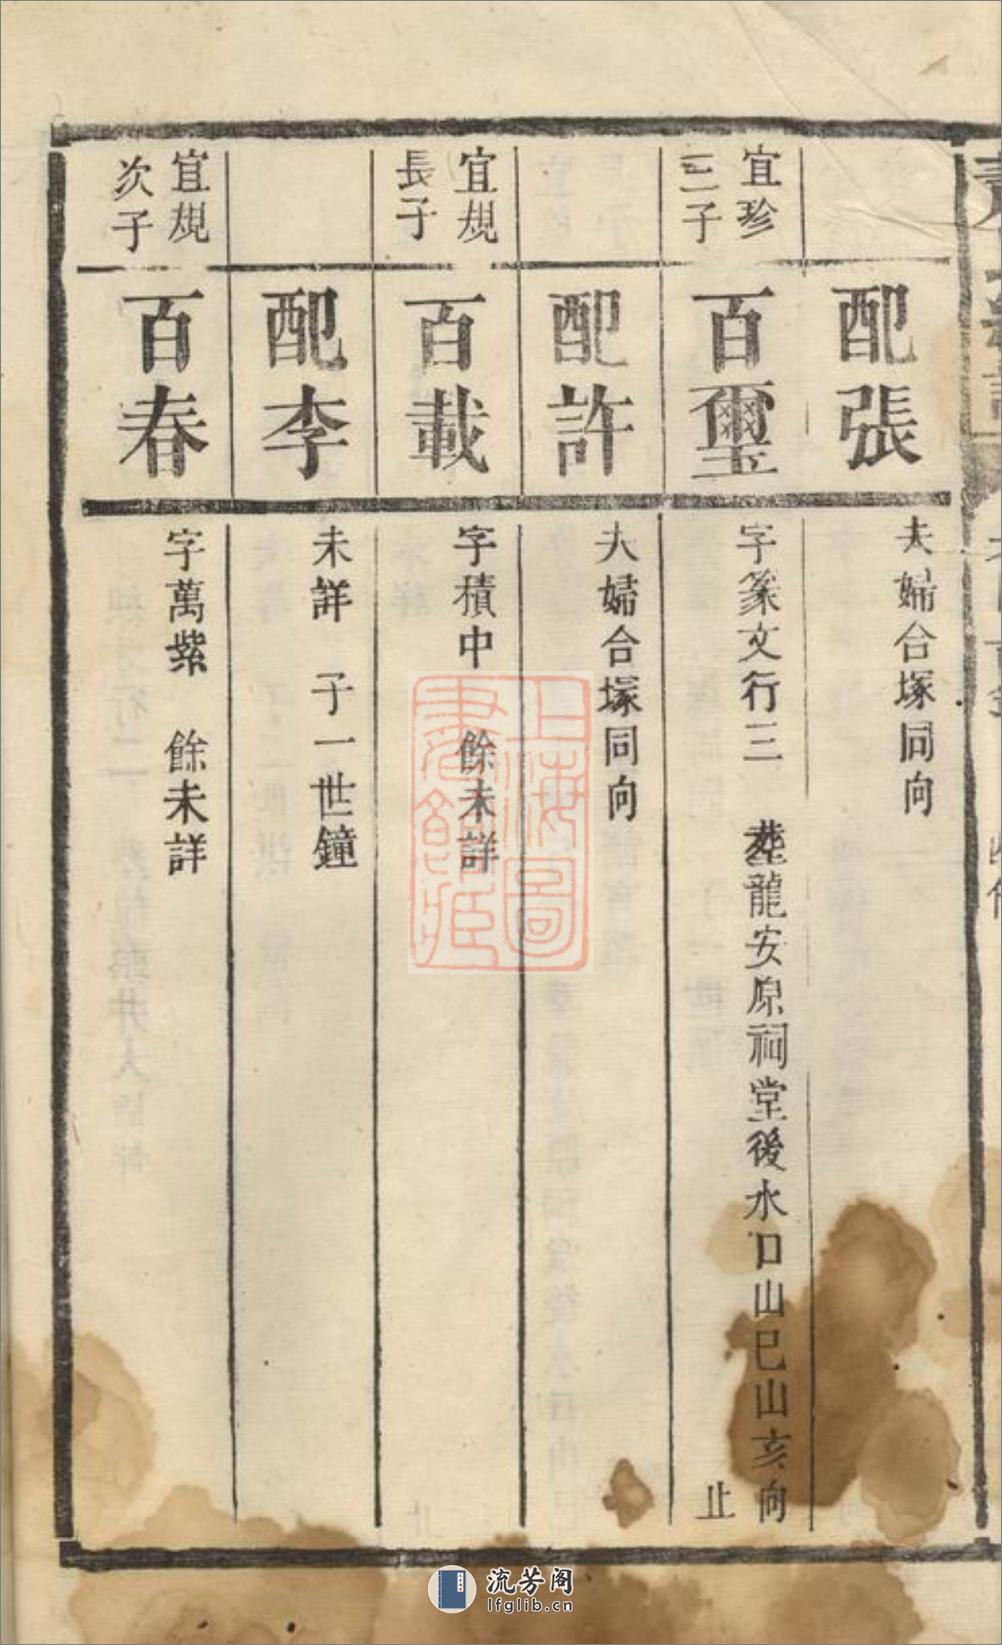 配張
夫婦合塚同向
宜珍
三子
百璽
字篆文行三 葬龍安原祠堂後水口山巳山亥向
止
配許
夫婦合塚同向
宜規
長子
百載
字積中 餘未詳
配李
未詳 子一世鐘
宜規
次子
百春
字萬紫 餘未詳
上海圖
書館藏
流芳阁
lfglib.cn